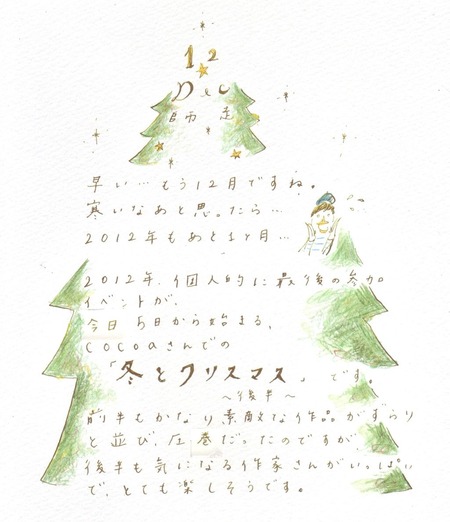 12
Dec
師走
早い…もう12月ですね。
寒いなあと思ったら…
2012年もあと1ヶ月…
2012年、個人的に最後の参加
イベントが、
今日5日から始まる、
cocoaさんでの
「冬とクリスマス」です。
〜後半〜
前半もかなり素敵な作品がずらり
と並び、圧巻だったのですが、
後半も気になる作家さんがいっぱい
で、とても楽しそうです。